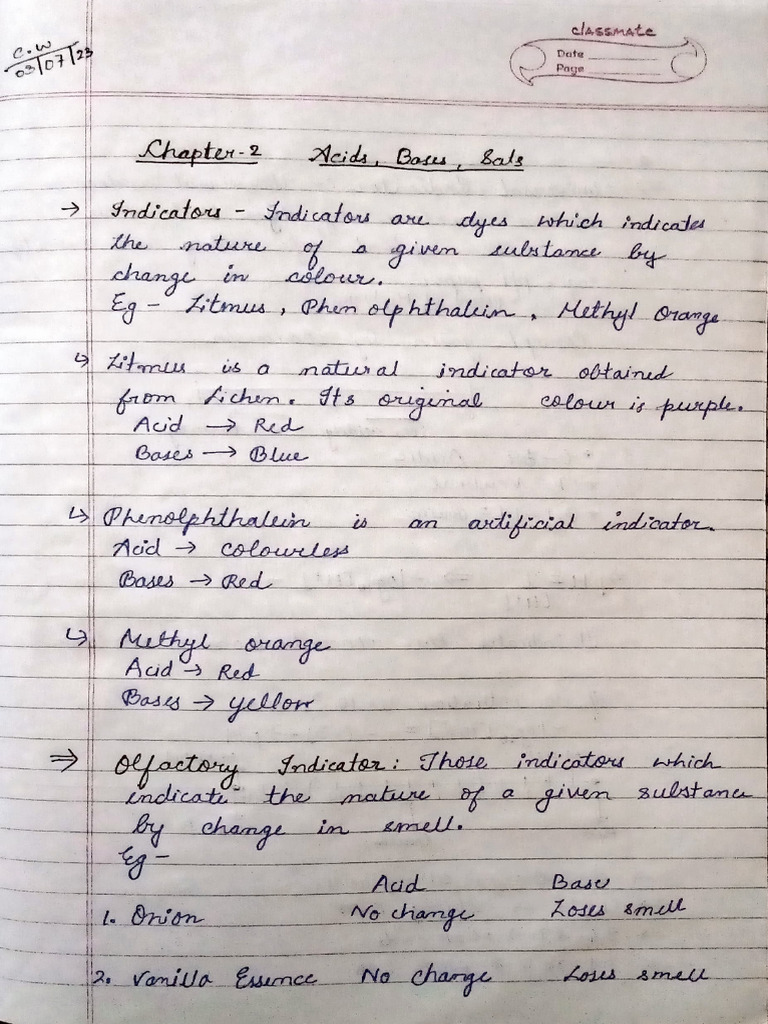 C.W
03/07/23
classmate
Date
Page
Chapter-2 Acids, Bases, Sals
→ Indicators - Indicators are dyes which indicates
the nature of a given substance by
change in colour.
Eg - Litmus, Phenolphthalein, Methyl Orange
↳ Litmus is a natural indicator obtained
from Lichen. Its original colour is purple.
Acid → Red
Bases → Blue
↳ Phenolphthalein is an artificial indicator.
Acid → colourless
Bases → Red
↳ Methyl orange
Acid → Red
Bases → yellow
⇒ Olfactory Indicator: Those indicators which
indicate the nature of a given substance
by change in smell.
Eg -
Acid Base
1. Onion No change Loses smell
2. Vanilla Essence No change Loses smell